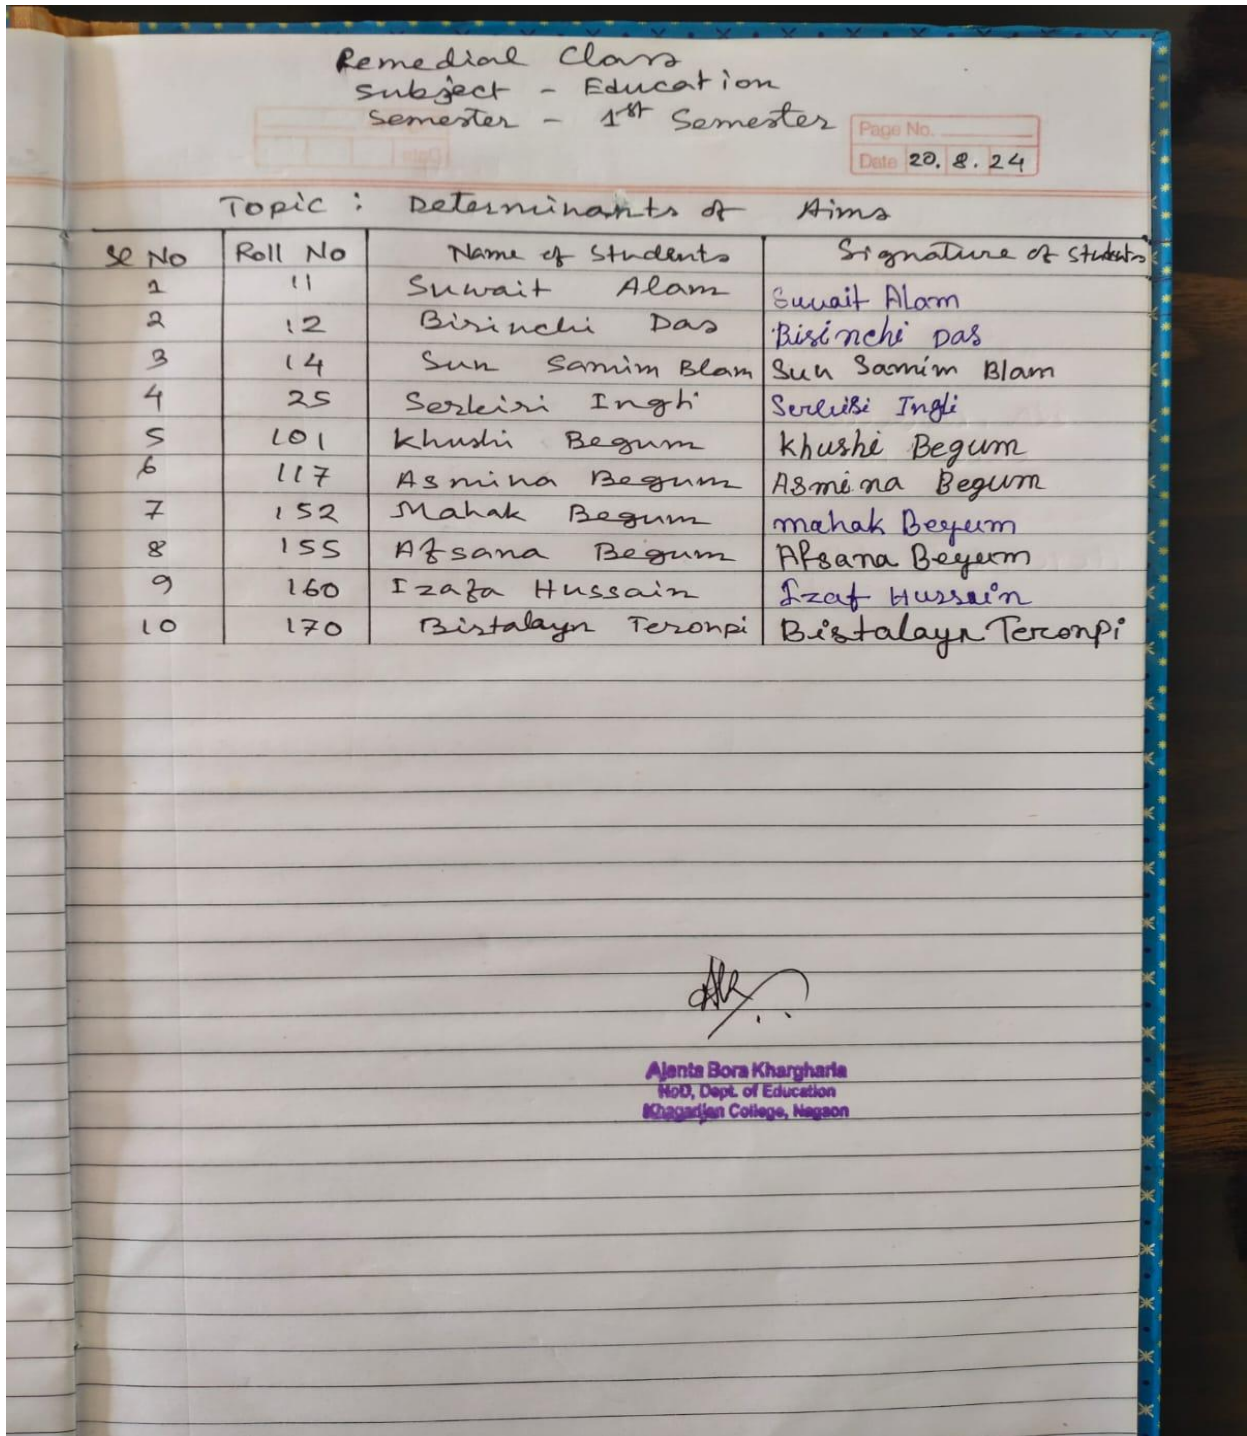 Remedial Class
Subject - Education
Semester - 1st Semester
Page No.
Date 20. 8. 24
Topic : Determinants of Aims
Sl No Roll No Name of Students Signature of Students
1 11 Suwait Alam Suwait Alam
2 12 Birinchi Das Birinchi Das
3 14 Sun Samim Blam Sun Samim Blam
4 25 Serkiri Ingti
5 101 Khushi Begum Khushi Begum
6 117 Asmina Begum Asmina Begum
7 152 Mahak Begum mahak Begum
8 155 Afsana Begum Afsana Begum
9 160 Izafa Hussain Izaf Hussain
10 170 Bistalayn Teronpi Bistalayn Teronpi
Ajanta Bora Khargharia
HoD, Dept. of Education
Khagarijan College, Nagaon